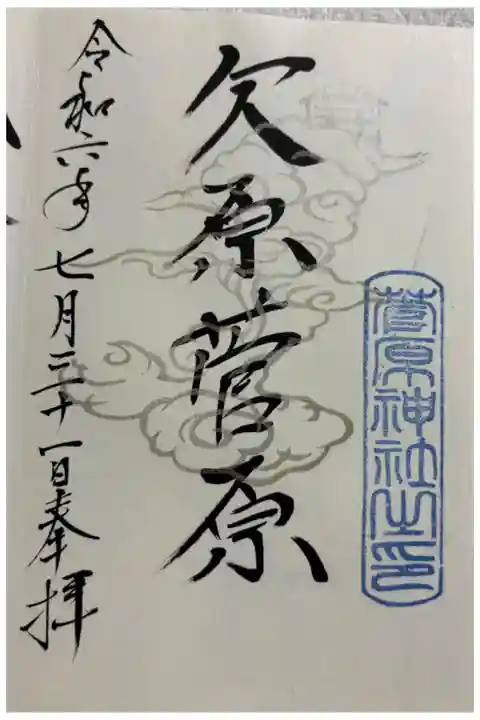 菅原神社之印
欠原菅原
令和六年七月三十一日奉拝